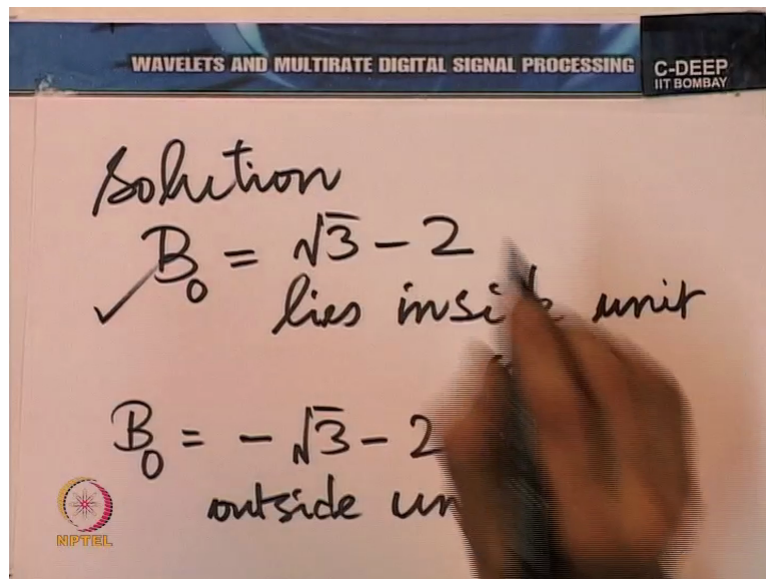 WAVELETS AND MULTIRATE DIGITAL SIGNAL PROCESSING
C-DEEP
IIT BOMBAY
Solution
B₀ = √3 - 2
lies inside unit
B₀ = - √3 - 2
outside
NPTEL